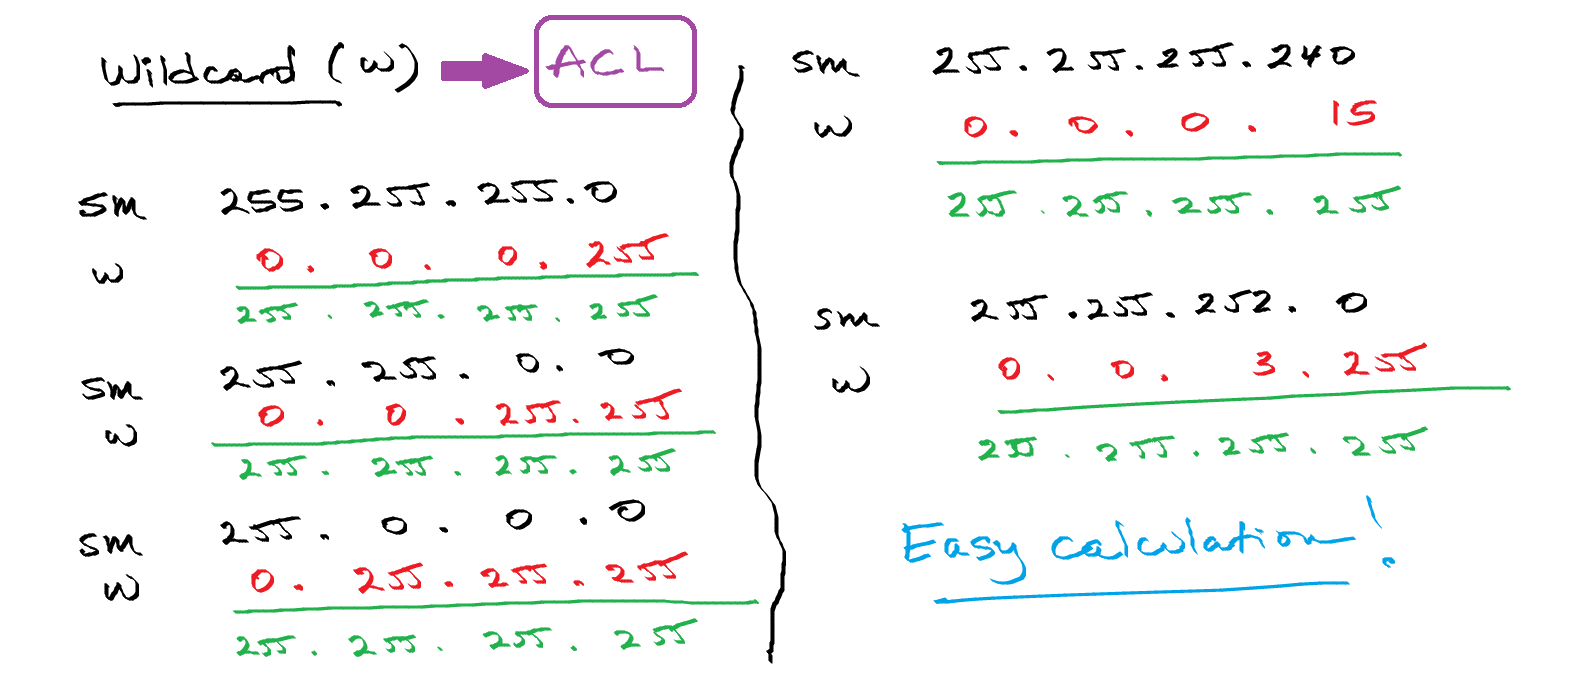 Wildcard (w) ACL
sm 255.255.255.0
w 0.0.0.255
255.255.255.255
sm 255.255.0.0
w 0.0.255.255
255.255.255.255
sm 255.0.0.0
w 0.255.255.255
255.255.255.255
sm 255.255.255.240
w 0.0.0.15
255.255.255.255
sm 255.255.252.0
w 0.0.3.255
255.255.255.255
Easy calculation!